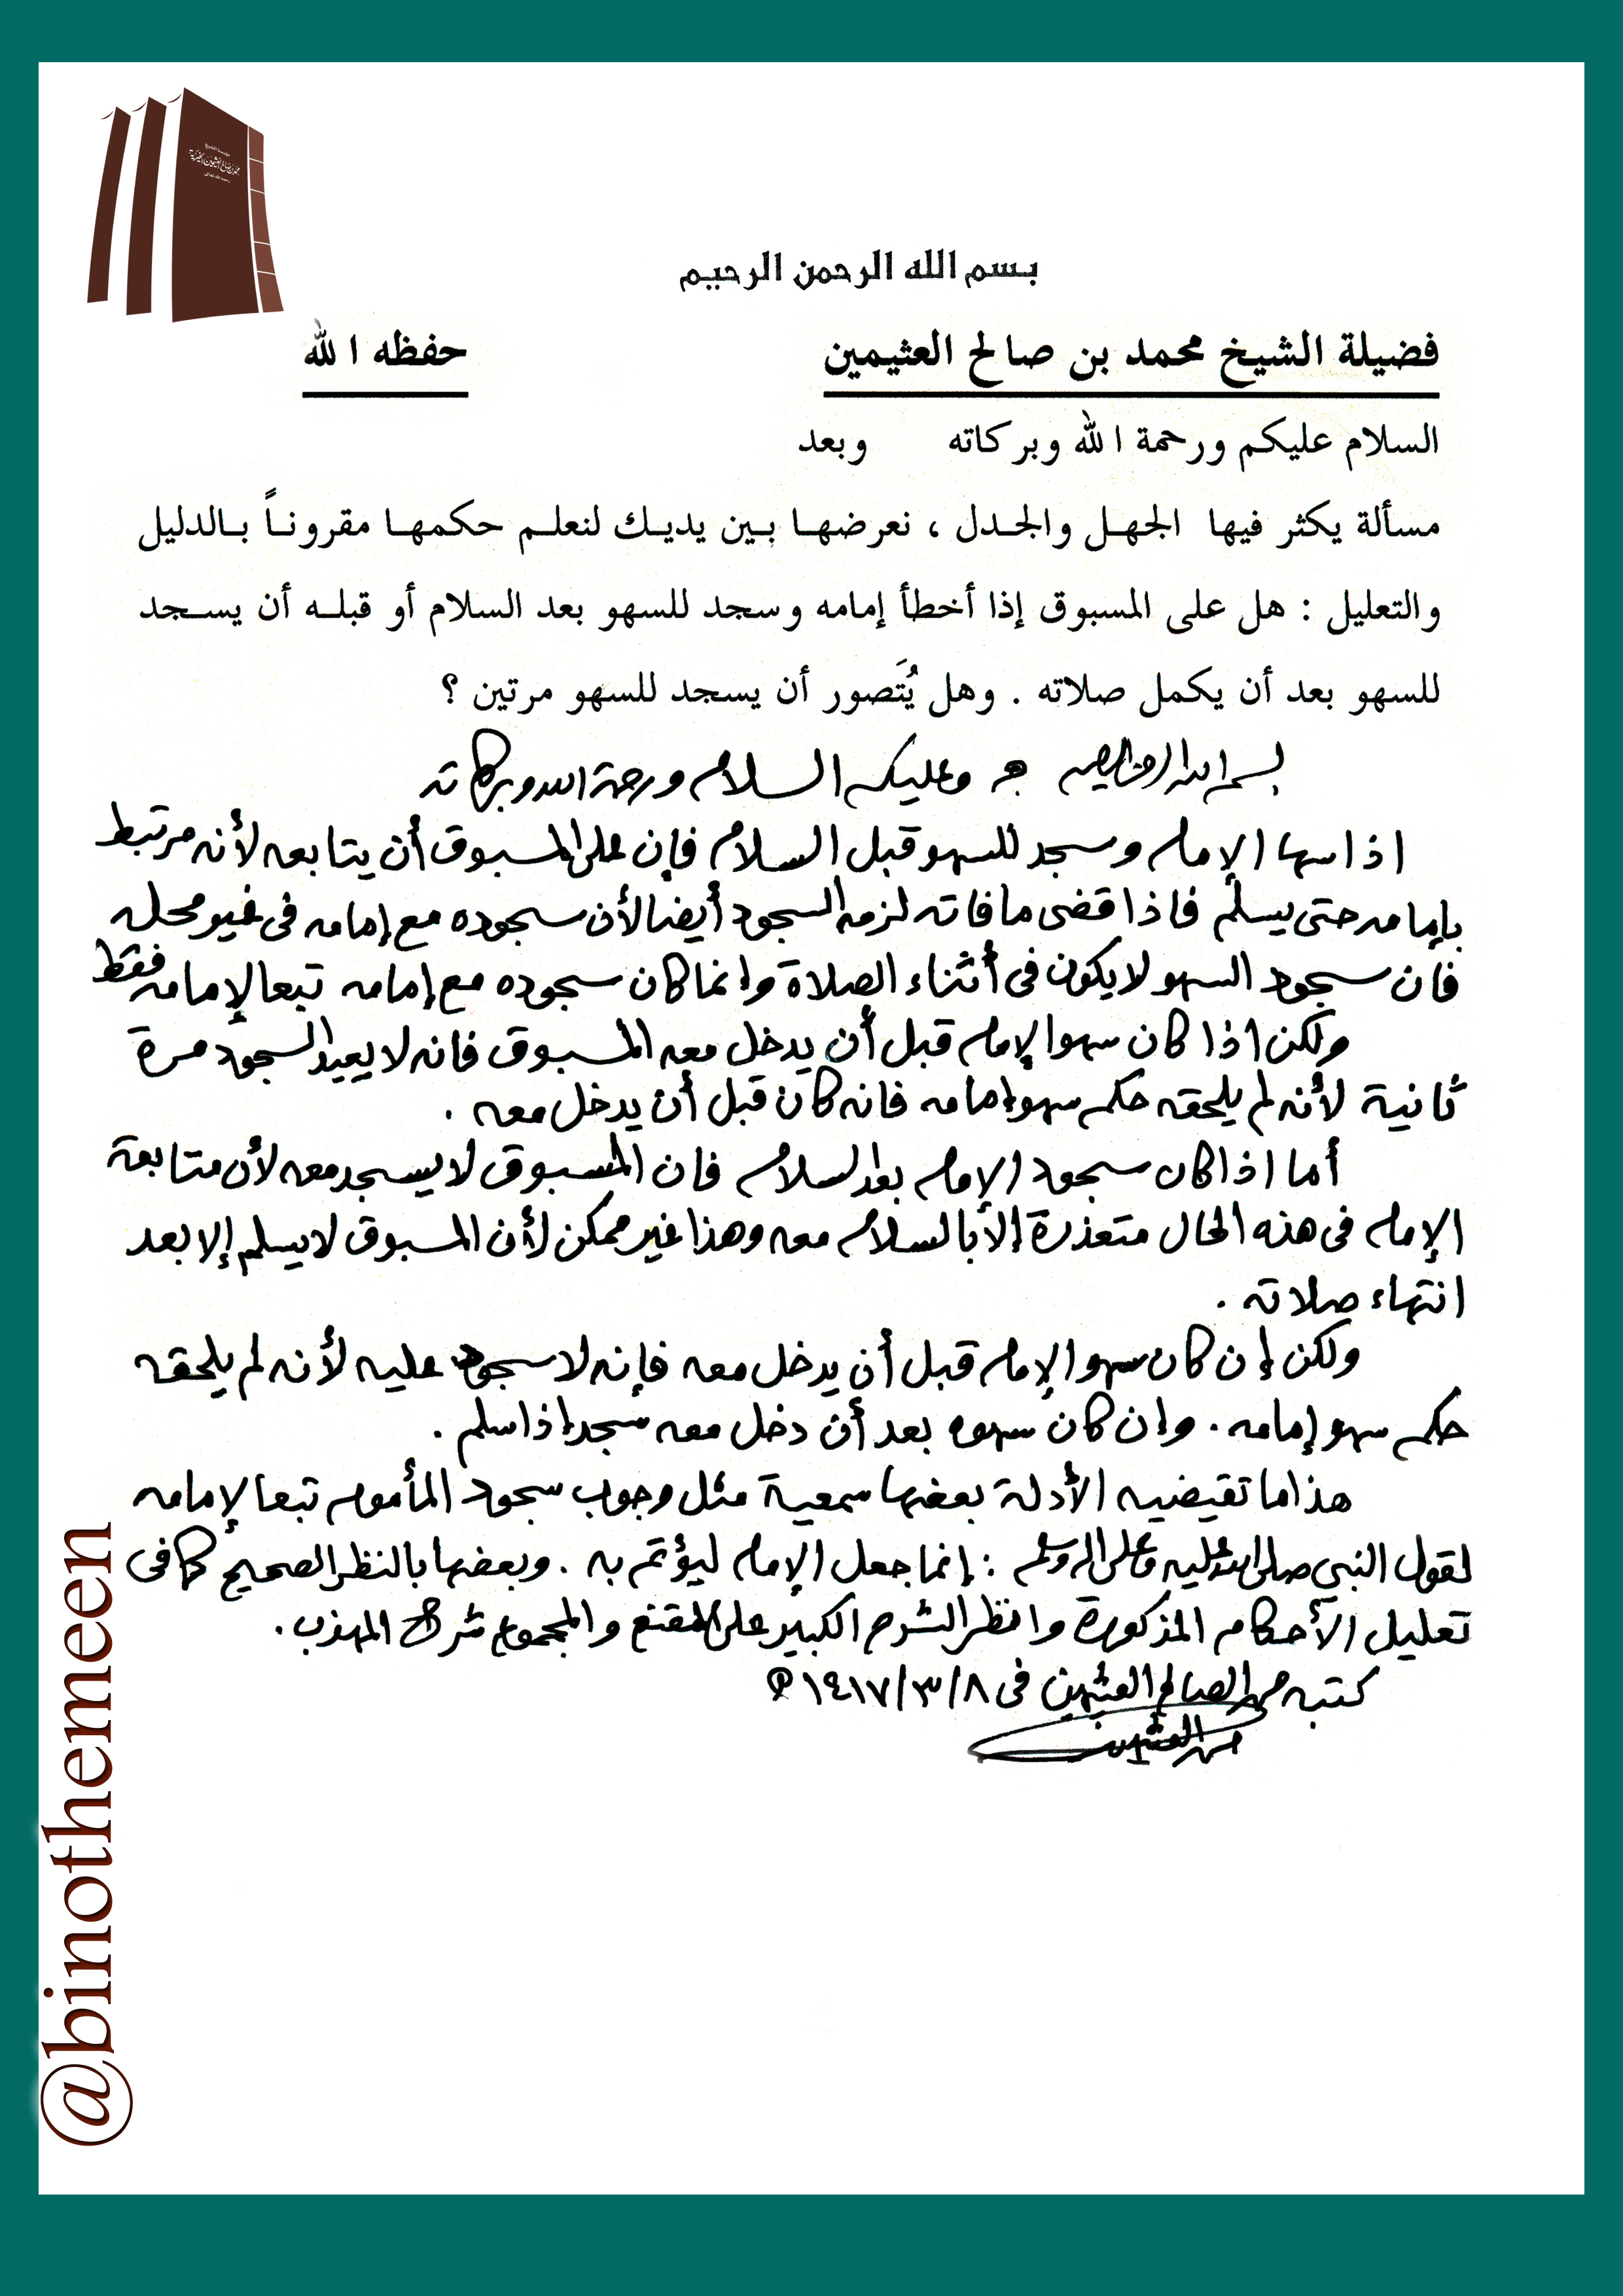 بسم الله الرحمن الرحيم
فضيلة الشيخ محمد بن صالح العثيمين حفظه الله
السلام عليكم ورحمة الله وبركاته وبعد
مسألة يكثر فيها الجهل والجدل ، نعرضها بين يديك لنعلم حكمها مقروناً بالدليل
والتعليل : هل على المسبوق إذا أخطأ إمامه وسجد للسهو بعد السلام أو قبله أن يسجد
للسهو بعد أن يكمل صلاته . وهل يُتَصور أن يسجد للسهو مرتين ؟
بسم الله الرحمن الرحيم ج وعليكم السلام ورحمة الله وبركاته
اذا سها الإمام وسجد للسهو قبل السلام فإن على المسبوق أن يتابعه لأنه مرتبط
بإمامه حتى يسلم فاذا قضى ما فاته لزمه السجود أيضا لأن سجوده مع إمامه فى غير محله
فان سجود السهو لا يكون فى أثناء الصلاة وإنما كان سجوده مع إمامه تبعا لإمامه فقط
ولكن اذا كان سهو الإمام قبل أن يدخل معه المسبوق فانه لا يعيد السجود مرة
ثانية لأنه لم يلحقه حكم سهو إمامه فانه كان قبل أن يدخل معه .
أما اذا كان سجود الإمام بعد السلام فان المسبوق لا يسجد معه لأن متابعة
الإمام فى هذه الحال متعذرة إلا بالسلام معه وهذا غير ممكن لأن المسبوق لا يسلم إلا بعد
انتهاء صلاته .
ولكن إن كان سهو الإمام قبل أن يدخل معه فإنه لا سجود عليه لأنه لم يلحقه
حكم سهو إمامه . وإن كان سهوه بعد أن دخل معه سجد إذا سلم .
هذا ما تقيضيه الأدلة بعضها سمعية مثل وجوب سجود المأموم تبعا لإمامه
لقول النبي صلى الله عليه وعلى آله وسلم : إنما جعل الإمام ليؤتم به . وبعضها بالنظر الصحيح كما فى
تعليل الأحكام المذكورة وانظر الشرح الكبير على المقنع والمجموع شرح المهذب .
كتبه محمد الصالح العثيمين فى ١٤١٧/٣/٨ هـ
محمد العثيمين
@binothemeen